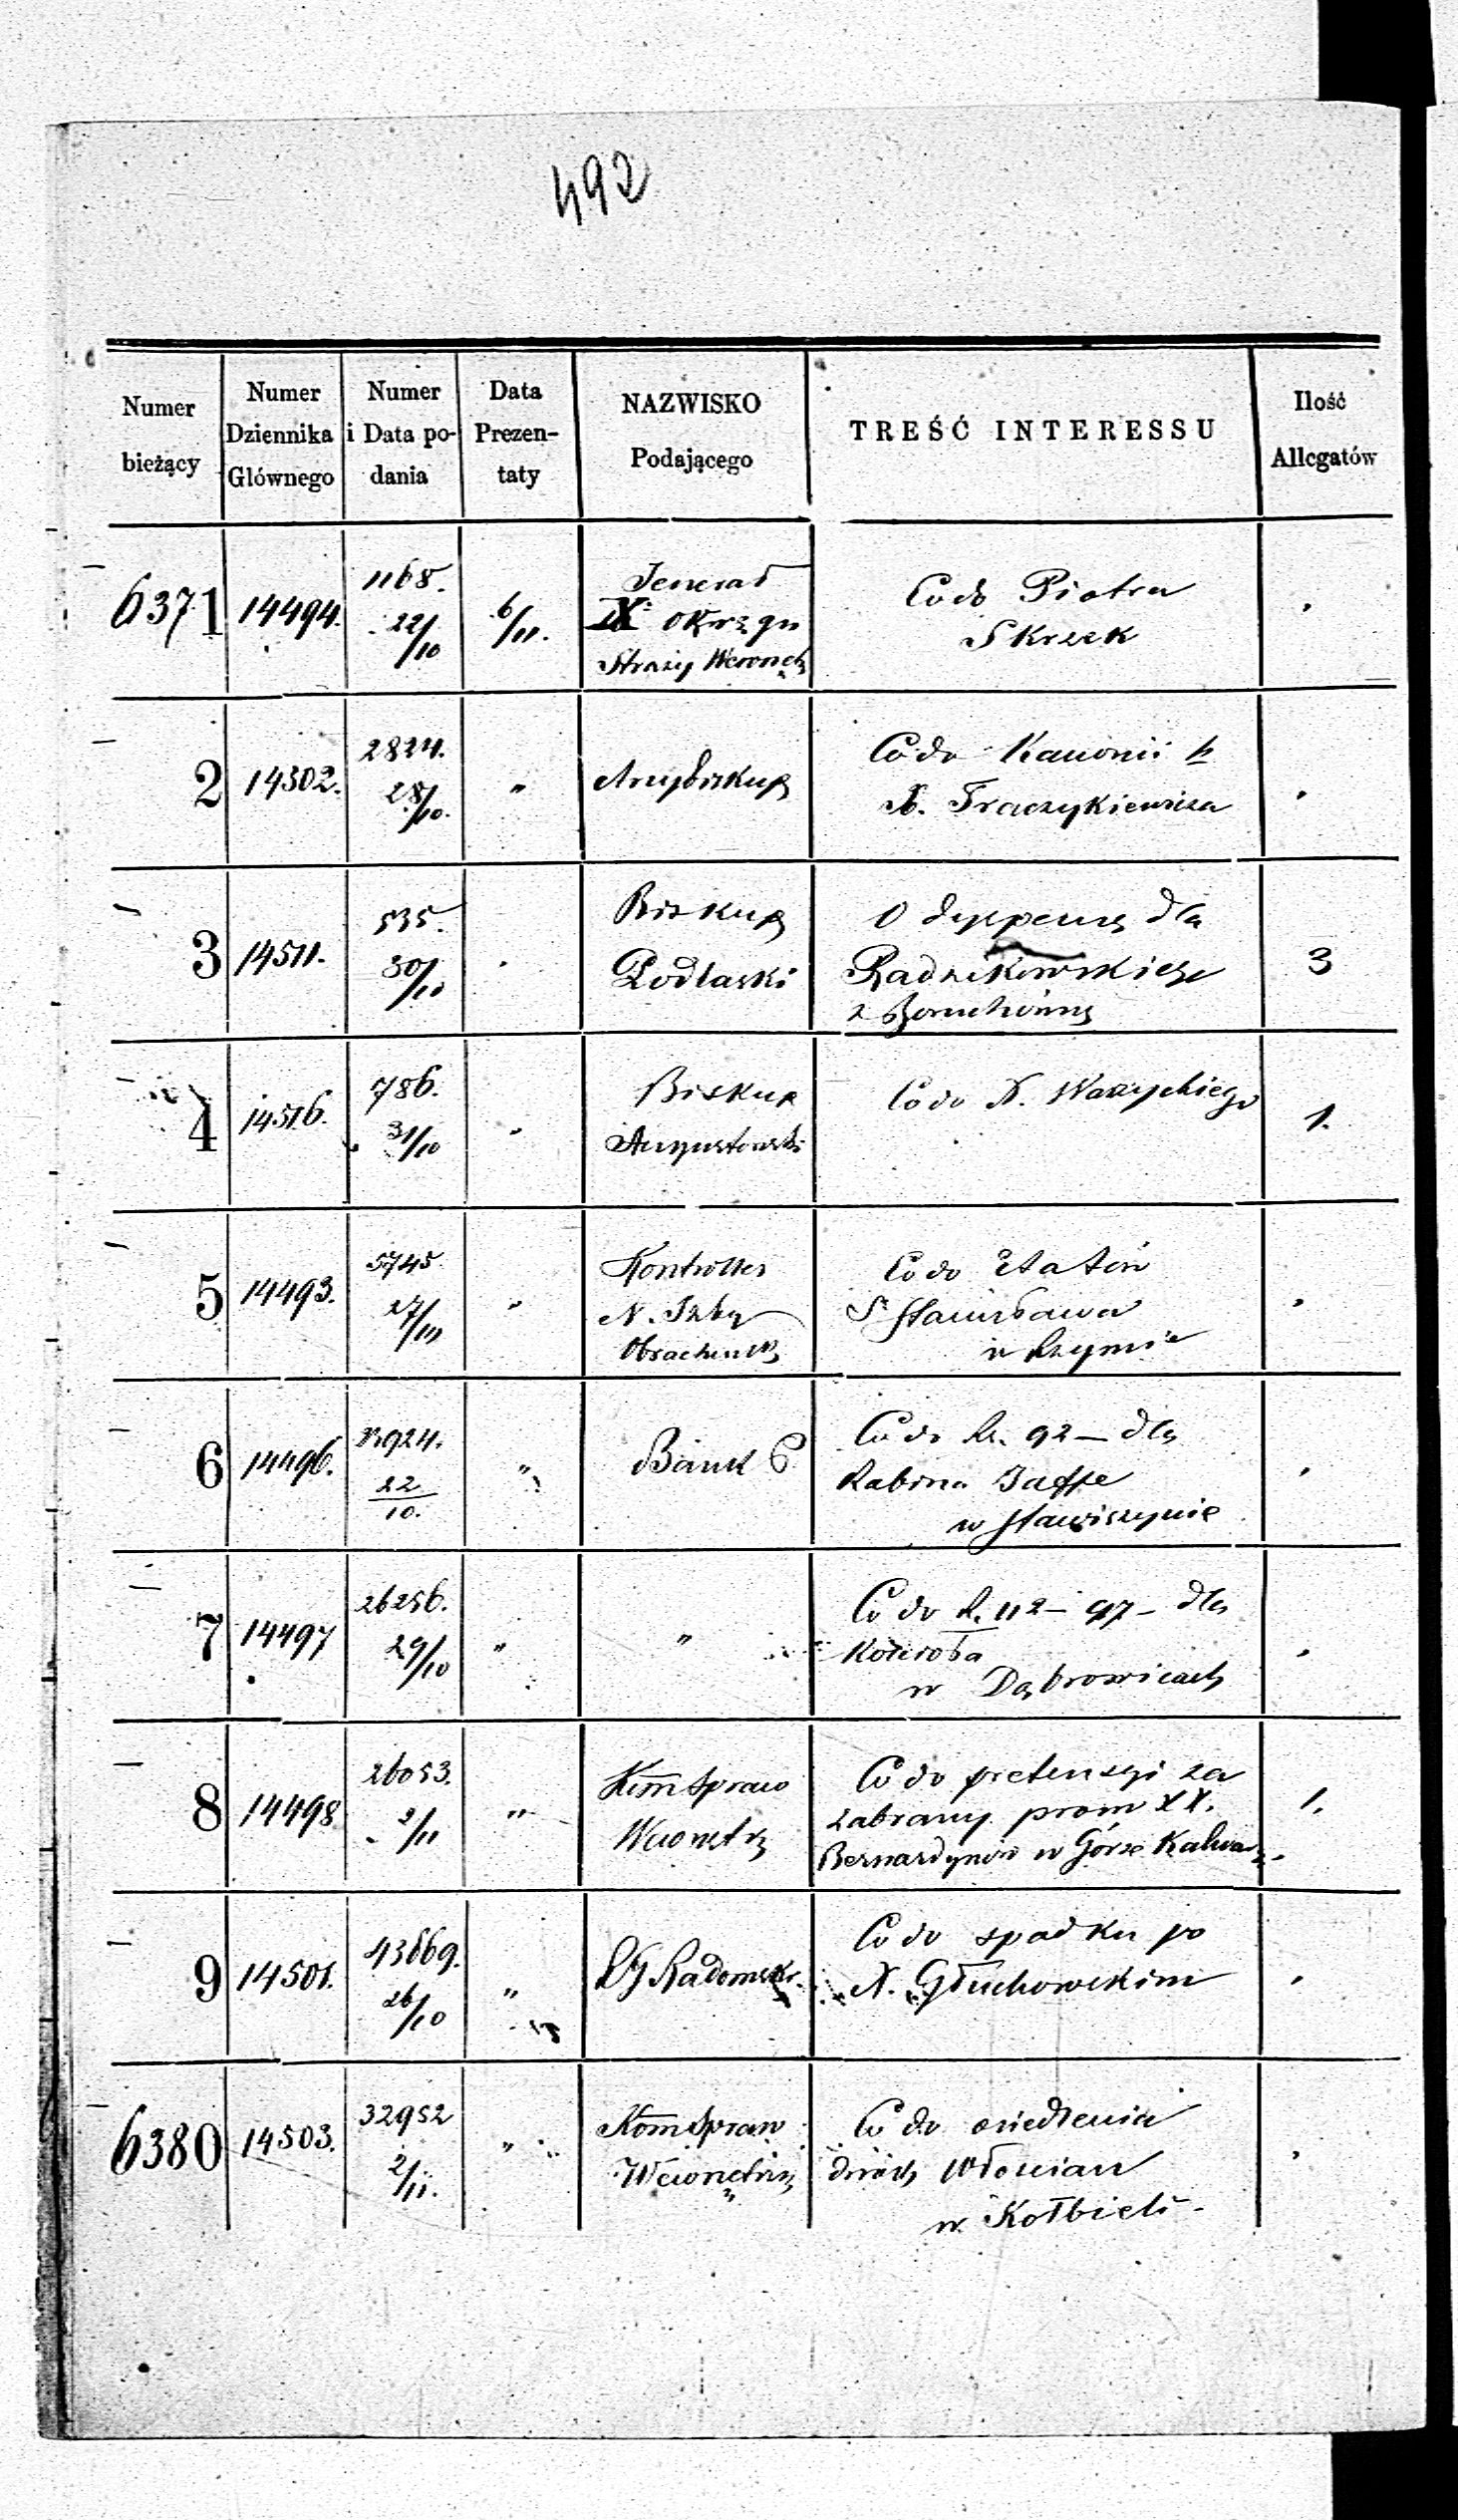 492
Numer bieżący | Numer Dziennika Głównego | Numer i Data podania | Data Prezentaty | NAZWISKO Podającego | TREŚĆ INTERESSU | Ilość Allegatów
6371 | 14494. | 1168. 22/10 | 6/11. | Jenerał IX Okręgu Straży Wewnęt | Co do Piotra Skrzek
2 | 14302. | 2824. 28/10. | " | Arcybiskup | Co do Kanonii h X. Traczykiewicza
3 | 14511. | 535. 30/10 | Biskup Podlaski | O dyspensę dla Radzikowskiego z | 3
4 | 14516. | 786. 31/10 | " | Biskup Augustowski | Co do X. Waszyckiego | 1.
5 | 14493. | 5745. 27/10 | " | Kontroller N. Izby Obrachunk | Co do Etatów S Stanisława w Rzymie
6 | 14496. | 22/10. | " | Bank P | Co do Rs. 92 — dla Rabina Jaffe w Stawiszynie
7 | 14497 | 26256. 29/10 | " | " | Co do R. 112 – 97 – dla Kościoła w Dąbrowicach
8 | 14498 | 26053. 2/11 | " | Kom Spraw Wewnętrz | Co do pretensyi za zabrany prom XX. Bernardynów w Górze Kalwar | 1.
9 | 14501. | 43569. 26/10 | " | RG Radomski | Co do spadku po X. Głuchowskim
6380 | 14503. | 32952 2/11. | " | Kom Spraw Wewnętrz | Co do osiedlenia dwóch Włościan w Kołbieli -